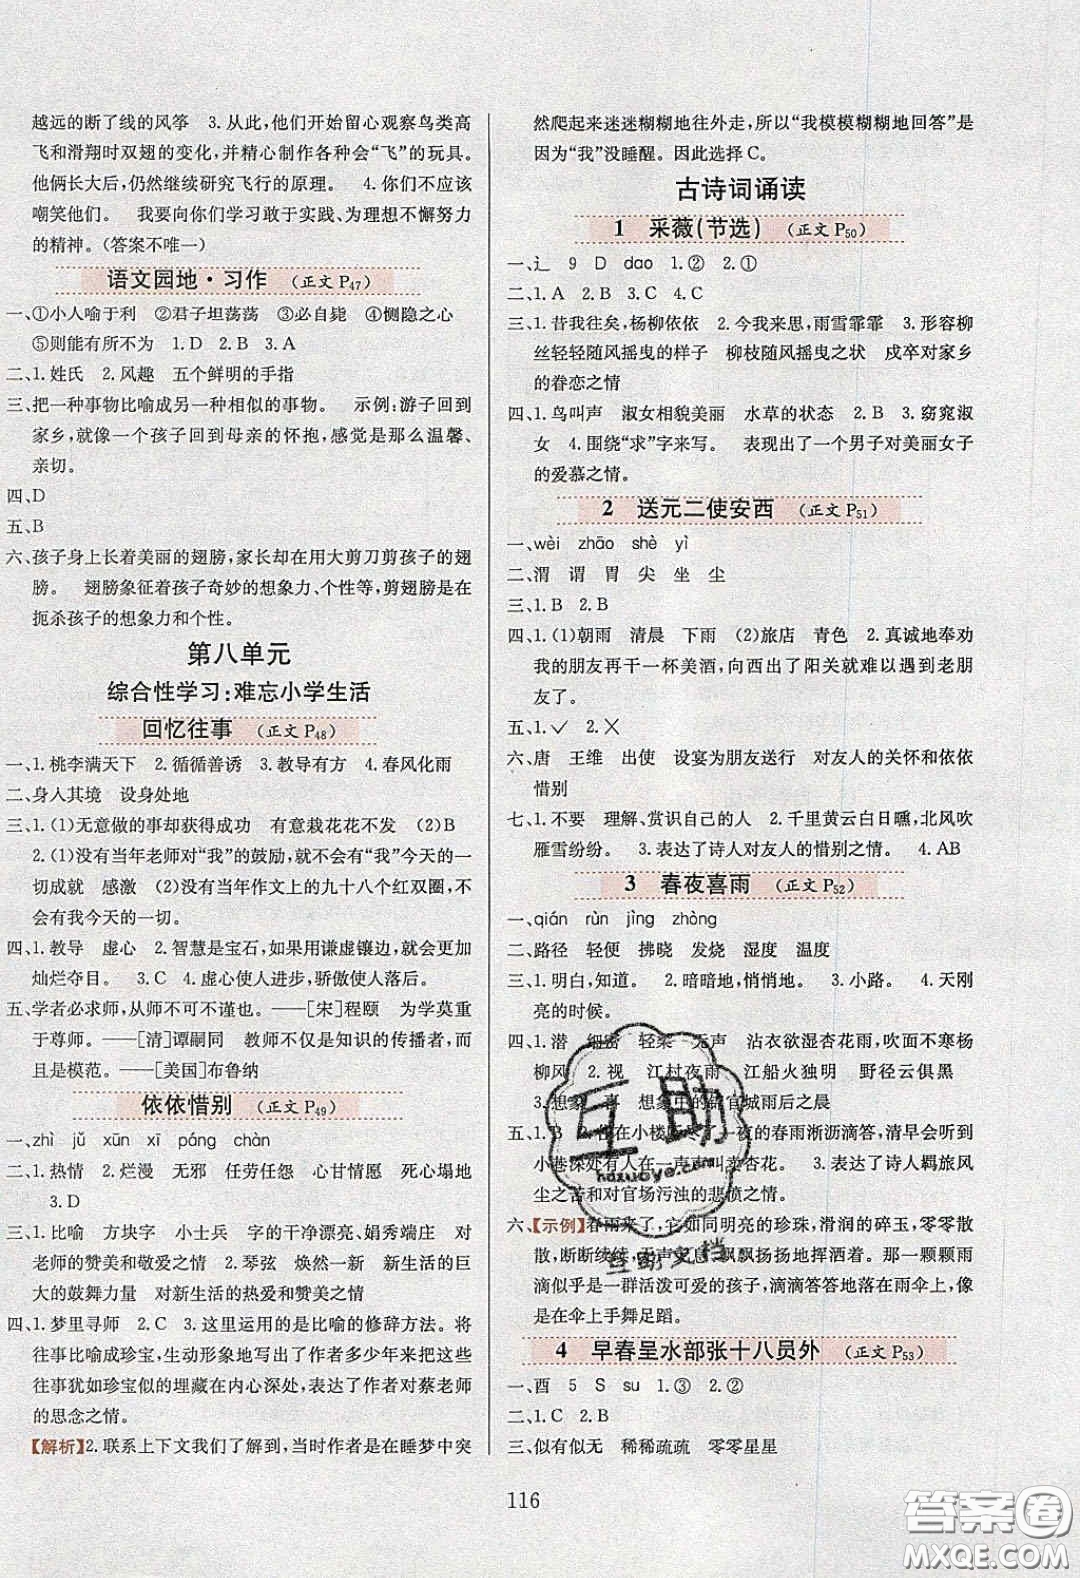 越远的断了线的风筝　3.从此,他们开始留心观察鸟类高
飞和滑翔时双翅的变化,并精心制作各种会“飞”的玩具。
他俩长大后,仍然继续研究飞行的原理。　4.你们不应该
嘲笑他们。　我要向你们学习敢于实践、为理想不懈努力
的精神。(答案不唯一)
语文园地·习作　(正文 P47)
一、①小人喻于利　②君子坦荡荡　③必自毙　④恻隐之心
⑤则能有所不为　1.D　2.B　3.A
二、1.姓氏　2.风趣　五个鲜明的手指
三、把一种事物比喻成另一种相似的事物。　示例:游子回到
家乡,就像一个孩子回到母亲的怀抱,感觉是那么温馨、
亲切。
四、D
五、B
六、孩子身上长着美丽的翅膀,家长却在用大剪刀剪孩子的翅
膀。　翅膀象征着孩子奇妙的想象力、个性等,剪翅膀是在
扼杀孩子的想象力和个性。
第八单元
综合性学习:难忘小学生活
回忆往事　(正文 P48)
一、1.桃李满天下　2.循循善诱　3.教导有方　4.春风化雨
二、身人其境　设身处地
三、1.(1)无意做的事却获得成功　有意栽花花不发　(2)B
2.(1)没有当年老师对“我”的鼓励,就没有“我”今天的一
切成就　感激　(2)没有当年作文上的九十八个红双圈,就没
有我今天的一切。
四、1.教导　虚心　2.智慧是宝石,如果用谦虚镶边,就会更加
灿烂夺目。　3.C　4.虚心使人进步,骄傲使人落后。
五、学者必求师,从师不可不谨也。——[宋]程颐　为学莫重
于尊师。——[清]谭嗣同　教师不仅是知识的传播者,而
且是模范。——[美国]布鲁纳
依依惜别　(正文 P49)
一、zhì　jǔ　xūn　xī　páng　chàn
二、1.热情　2.烂漫　无邪　任劳任怨　心甘情愿　死心塌地
3.D
三、1.比喻　方块字　小士兵　字的干净漂亮、娟秀端庄　对
老师的赞美和敬爱之情　2.琴弦　焕然一新　新生活的巨
大的鼓舞力量　对新生活的热爱和赞美之情
四、1.梦里寻师　2.C　3.这里运用的是比喻的修辞方法。将
往事比喻成珍宝,生动形象地写出了作者多少年来把这些
往事犹如珍宝似的埋藏在内心深处,表达了作者对蔡老师
的思念之情。
【解析】2.联系上下文我们了解到,当时作者是在睡梦中突
然爬起来迷迷糊糊地往外走,所以“我模模糊糊地回答”是
因为“我”没睡醒。因此选择 C。
古诗词诵读
1　采薇(节选)　(正文 P50)
一、辶　9　D　dao　1.②　2.①
二、1.A　2.B　3.B　4.A
三、1.昔我往矣,杨柳依依　2.今我来思,雨雪霏霏　3.形容柳
丝轻轻随风摇曳的样子　柳枝随风摇曳之状　戍卒对家乡
的眷恋之情
四、1.鸟叫声　淑女相貌美丽　水草的状态　2.B　3.窈窕淑
女　4.围绕“求”字来写。　表现出了一个男子对美丽女子
的爱慕之情。
2　送元二使安西　(正文 P51)
一、wèi　zhāo　shè　yì
二、渭　谓　胃　尖　坐　尘
三、1.B　2.B
四、1.(1)朝雨　清晨　下雨　(2)旅店　青色　2.真诚地奉劝
我的朋友再干一杯美酒,向西出了阳关就难以遇到老朋
友了。
五、1.✓　2.✗
六、唐　王维　出使　设宴为朋友送行　对友人的关心和依依
惜别
七、1.不要　理解、赏识自己的人　2.千里黄云白日曛,北风吹
雁雪纷纷。　3.表达了诗人对友人的惜别之情。　4.AB
3　春夜喜雨　(正文 P52)
一、qián　rùn　jìng　zhòng
二、路径　轻便　拂晓　发烧　湿度　温度
三、1.明白,知道。　2.暗暗地,悄悄地。　3.小路。　4.天刚
亮的时候。
四、1.潜　细密　轻柔　无声　沾衣欲湿杏花雨,吹面不寒杨
柳风　2.视　江村夜雨　江船火独明　野径云俱黑
3.想象　喜　想象中的锦官城雨后之晨
五、1.B　2.在小楼听尽了一夜的春雨淅沥滴答,清早会听到
小巷深处有人在一声声叫卖杏花。　3.表达了诗人羁旅风
尘之苦和对官场污浊的悲愤之情。
六、【示例】春雨来了,它如同明亮的珍珠,滑润的碎玉,零零散
散,断断续续,无声无息、飘飘扬扬地挥洒着。那一颗颗雨
滴似乎是一群活泼可爱的孩子,滴滴答答地落在雨伞上,像是
在伞上手舞足蹈。
4　早春呈水部张十八员外　(正文 P53)
一、酉　5　S　su　1.③　2.②
二、1.C　2.B
三、似有似无　稀稀疏疏　零零星星
116
互助
hdzuoye.com
互助文档
答案圈
MXQE.COM